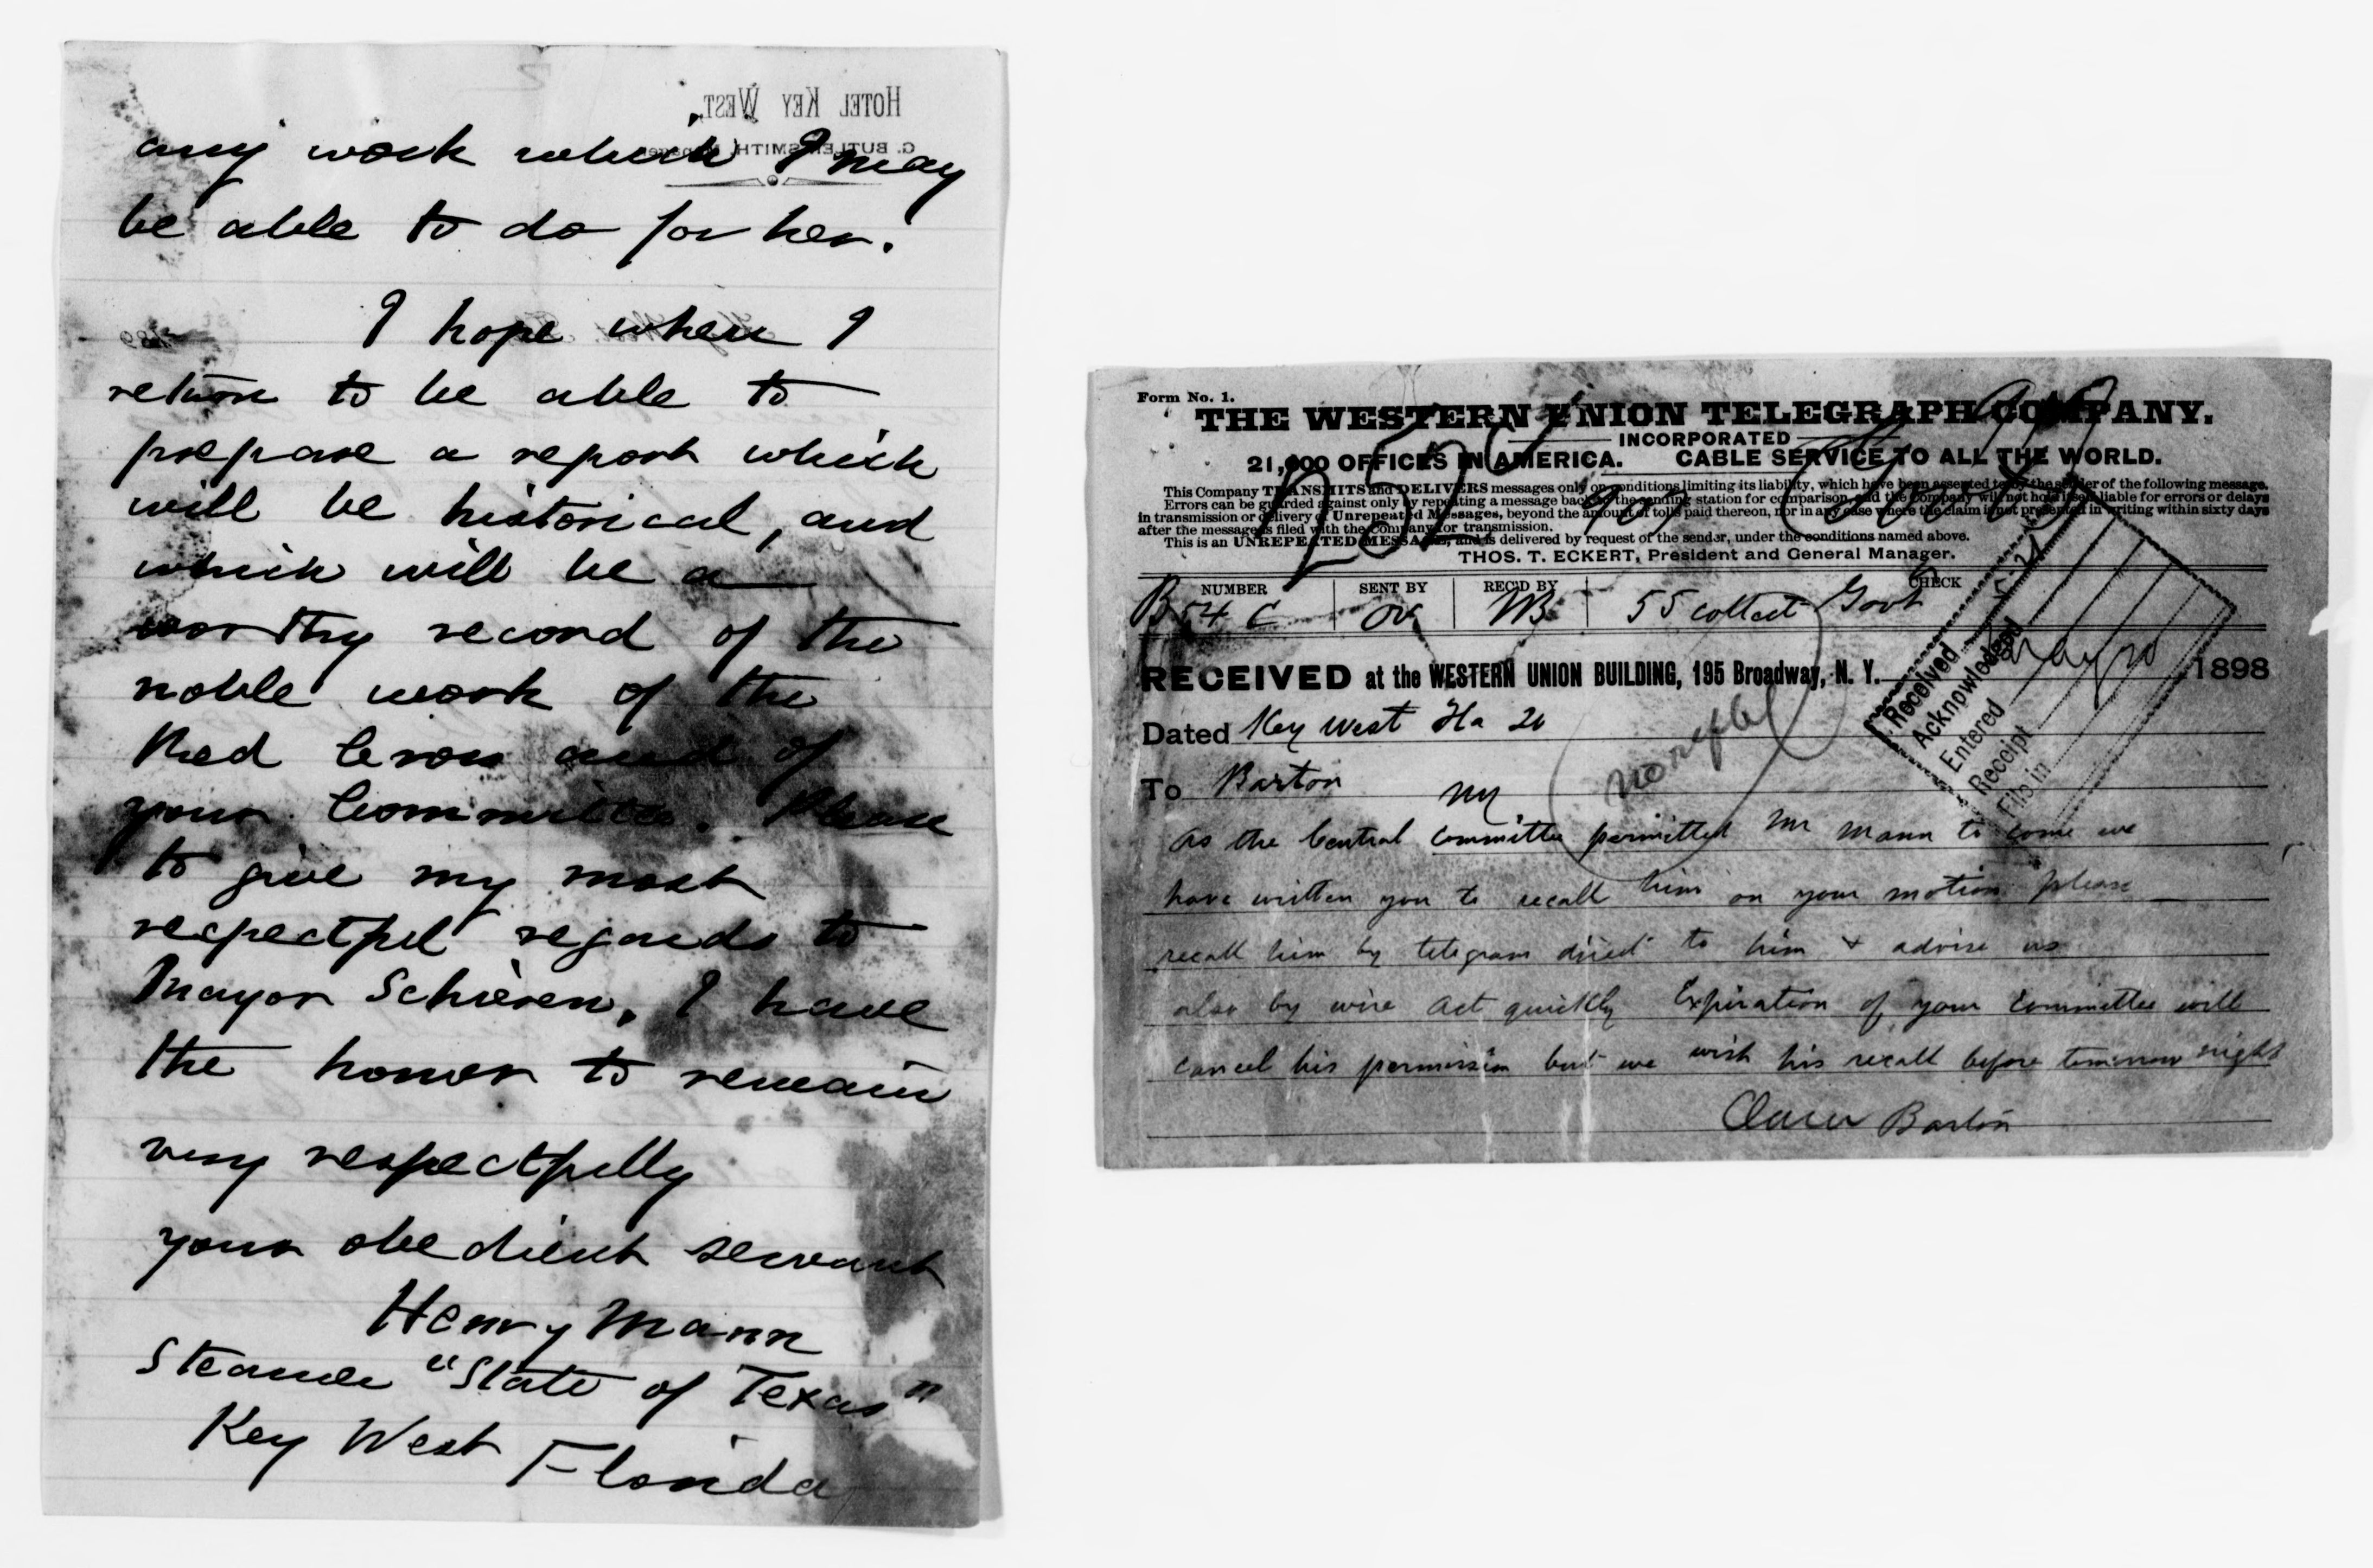 HOTEL KEY WEST,
C. BUTLER SMITH, Manager
any work which I may
be able to do for her.
I hope when I
return to be able to
prepare a report which
will be historical, and
which will be a
worthy record of the
noble work of the
Red Cross and of
your Committee. Please
to give my most
respectful regards to
Mayor Schieren. I have
the honor to remain
very respectfully
your obedient servant
Henry Mann
Steamer "State of Texas"
Key West Florida
Form No. 1.
THE WESTERN UNION TELEGRAPH COMPANY.
INCORPORATED
21,000 OFFICES IN AMERICA. CABLE SERVICE TO ALL THE WORLD.
This Company TRANSMITS and DELIVERS messages only on conditions limiting its liability, which have been assented to by the sender of the following message.
Errors can be guarded against only by repeating a message back to the sending station for comparison, and the Company will not hold itself liable for errors or delays
in transmission or delivery of Unrepeated Messages, beyond the amount of tolls paid thereon, nor in any case where the claim is not presented in writing within sixty days
after the message is filed with the Company for transmission.
This is an UNREPEATED MESSAGE, and is delivered by request of the sender, under the conditions named above.
THOS. T. ECKERT, President and General Manager.
NUMBER SENT BY REC'D BY CHECK
B 54 C 55 collect Govt
RECEIVED at the WESTERN UNION BUILDING, 195 Broadway, N. Y. May 20 1898
Received 5-21
Acknowledged
Entered
Receipt
File in
Dated Key West Fla 20
To Barton
NY
As the Central Committee permitted Mr Mann to come we
have written you to recall him on your motion please
recall him by telegram direct to him & advise us
also by wire act quickly Expiration of your Committee will
cancel his permission but we wish his recall before tomorrow night
Clara Barton